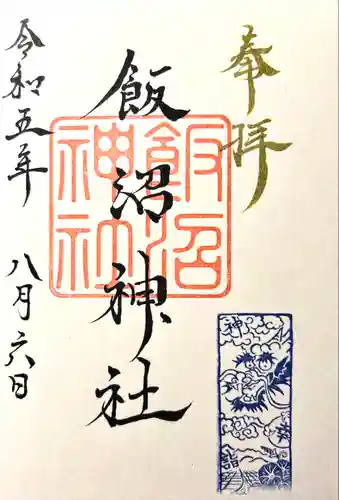 奉拝
飯沼神社
飯沼
神社
令和五年
八月六日
神
詣